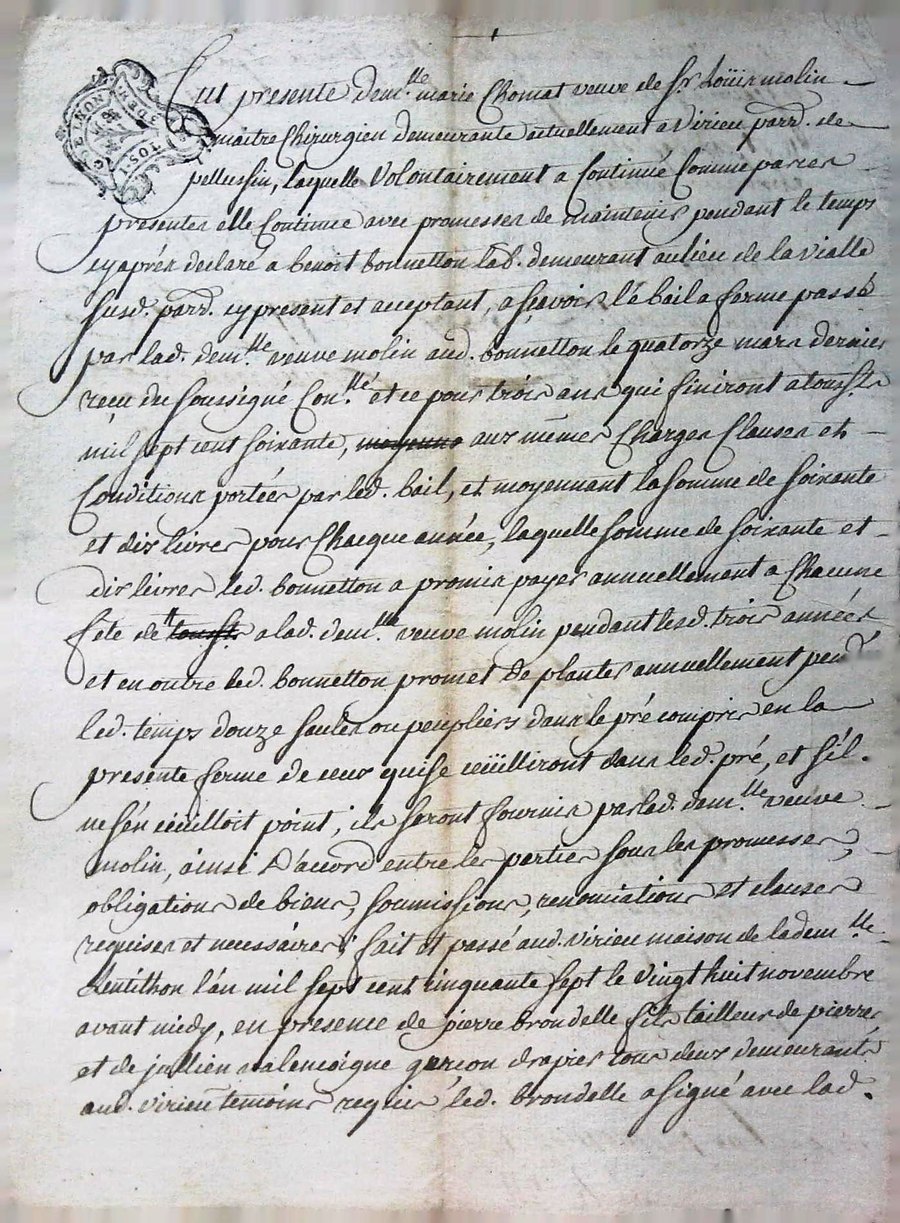 GNON LYON
SDEN
TOS.1
Fut presente dem.lle marie Chomat veuve de Sr. Loüis molin
maitre Chirurgien demeurante actuellement a virieu parr. de
pellussin, laquelle volontairement a Continué Comme par ces
presentes elle Continue avec promesses de maintenir pendant le temps
cy aprés declaré a benoit bonnetton lab. demeurant au lieu de la vialle
susd. parr. cy present et acceptant, a sçavoir l'e bail a ferme passé
par lad. dem.lle veuve molin aud. bonnetton le quatorze mars dernier
recu du soussigné Con.lle et ce pour trois ans qui finiront a toussts
mil sept cent soixante, moyenna aux mêmes Charges Clauses et
Conditions portées par led. bail, et moyennant la somme de soixante
et dix livres pour Chaeque année, laquelle somme de soixante et
dix livres led. bonnetton a promis payer annuellement a Chacune
fete de tt toussts a lad. dem.lle veuve molin pendant lesd. trois années
et en outre led. bonnetton promet de planter annuellement pend.t
led. temps douze saules ou peupliers dans le pré compris en la
presente ferme de ceux qui se ceüilliront dans led. pré, et s'il
ne s'en ceüilloit point, ils seront fournis par lad. dem.lle veuve
molin, ainsi d'accord entre les parties sous les promesses,
obligations de biens, soumissions, renonciations et clauses
requises et necessaires; fait et passé aud. virieu maison de la dem.lle
Lentithon l'an mil sept cent cinquante sept le vingt huit novembre
avant midy, en presence de pierre brondelle fils tailleur de pierres
et de jullien malencoigne garcon drapier tous deux demeurants
aud. virieu temoins requis led. brondelle a signé avec lad.